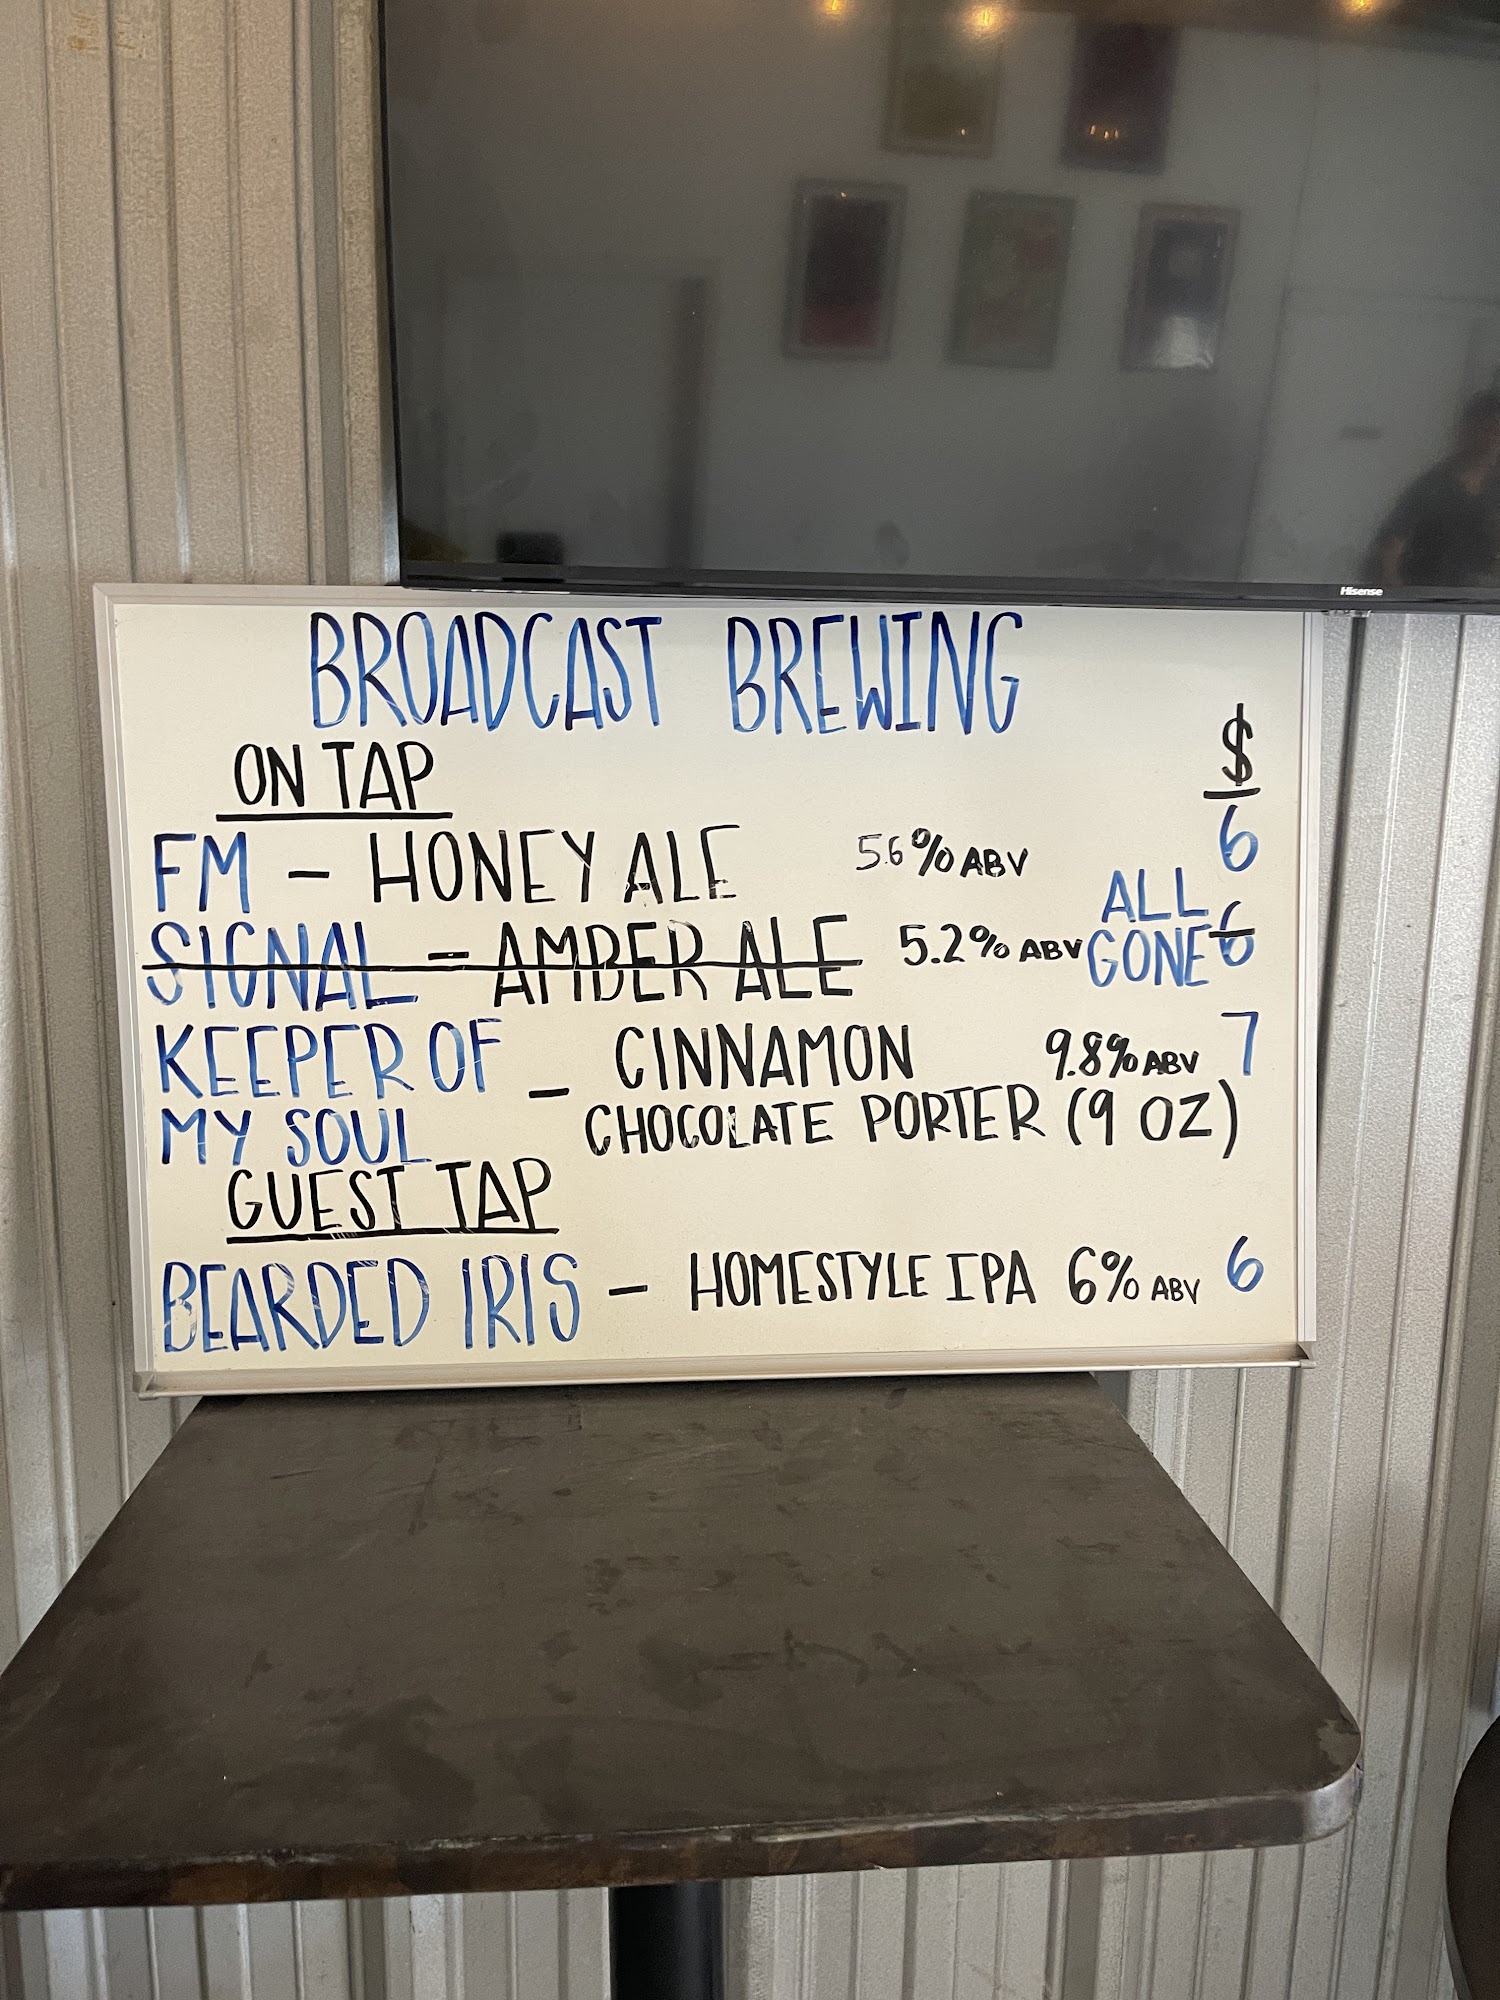 Hisense
BROADCAST BREWING
ON TAP
$
FM - HONEY ALE 5.6% ABV 6
SIGNAL - AMBER ALE 5.2% ABV ALL GONE 6
KEEPER OF MY SOUL - CINNAMON 9.8% ABV 7
CHOCOLATE PORTER (9 OZ)
GUEST TAP
BEARDED IRIS - HOMESTYLE IPA 6% ABV 6